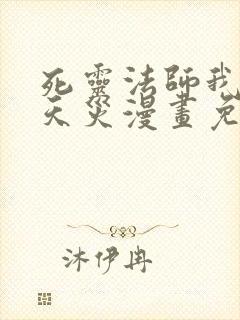 死靈法師我
天災漫畫免
沐伊冉